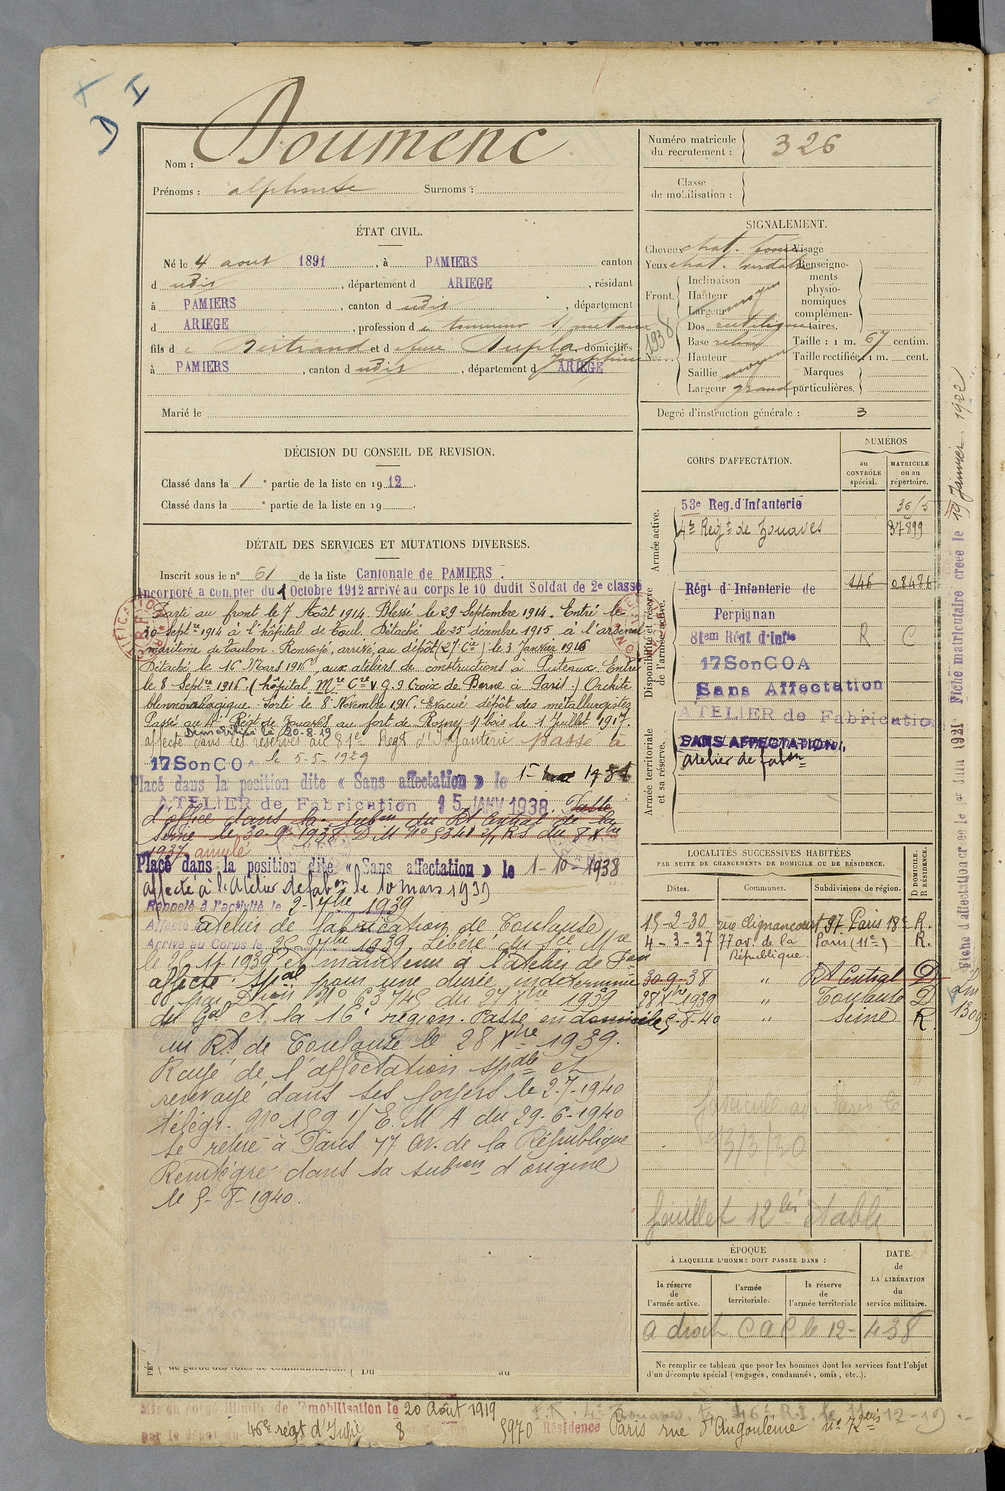 D I
Nom : Doumenc
Prénoms : alphonse Surnoms :
Numéro matricule du recrutement : 326
Classe de mobilisation :
ÉTAT CIVIL.
Né le 4 aout 1891, à PAMIERS canton
d udis, département d ARIEGE, résidant
à PAMIERS, canton d udis, département
d ARIEGE, profession d e tourneur s/ metaux
fils d e Bertrand et d feue Dupla Josephine domiciliés
à PAMIERS, canton d udis, département d ARIEGE
Marié le
SIGNALEMENT.
Cheveux chat. foncé Visage
Yeux chat. verdatre Renseignements physionomiques complémentaires.
Front. Inclinaison
Hauteur moyen
Largeur
Nez. Dos rectiligne
Base
Hauteur moyen
Saillie
Largeur grand
Taille : 1 m. 67 centim.
Taille rectifiée : 1 m. cent.
Marques particulières.
1938
Degré d'instruction générale : 3
DÉCISION DU CONSEIL DE REVISION.
Classé dans la 1e partie de la liste en 1912.
Classé dans la e partie de la liste en 19 .
DÉTAIL DES SERVICES ET MUTATIONS DIVERSES.
Inscrit sous le n° 61 de la liste Cantonale de PAMIERS.
Incorporé à compter du 1 Octobre 1912 arrivé au corps le 10 dudit Soldat de 2e classe
Parti au front le 7 Août 1914. Blessé le 29 Septembre 1914. Entré le
30 Septbre 1914 à l'hôpital de Toul. Détaché le 25 décembre 1915 à l'arsenal
maritime de Toulon. Renvoyé, arrivé au dépôt (27 Cie) le 3 Janvier 1916
Détaché le 16 Mars 1916 aux ateliers de constructions à Puteaux. Entré
le 8 Septbre 1916 (hôpital Mre Cre V.G.9 Croix de Berne à Paris.) Orchite
blennorrhagique. Sorti le 8 Novembre 1916. Evacué dépôt des métallurgistes
Passé au 4e Régt de Zouaves au fort de Rosny s/ bois le 1 Juillet 1917.
Démobilisé le 20-8-19
affecté dans les réserves au 81e Regt d'Infanterie passé le
17 Son COA le 5-5-1929
Placé dans la position dite « Sans affectation » le
ATELIER de Fabrication 15 JANV 1938. Passé
d'office dans la subon du Rt Central de la
Seine le 30-9-1938 D.M. n° 5348 2/ R.S du 8 Xbre
1937. annulé
Placé dans la position dite « Sans affectation » le 1-10-1938
affecté à l'Atelier de fabon le 10 mars 1939
Rappelé à l'activité le 2 7bre 1939
Affecté atelier de fabrication de Toulouse
Arrivé au Corps le 1939. Libéré du Sce Mre
le 1939 et maintenu à l'atelier de Fon
affecté spal pour une durée indéterminée
par Dion n° 63745 du 27 Xbre 1939
du Gal Ct la 16e région. Passé en domicile
au Rt de Toulouse le 28 Xbre 1939.
Rayé de l'affectation spale et
renvoyé dans ses foyers le 2-7-1940
télégr. n° 159 1/ E. M A du 29-6-1940
se retire à Paris 77 av. de la République
Réintégré dans sa subion d'origine
le 5-8-1940.
CORPS D'AFFECTATION.
NUMÉROS
au CONTRÔLE spécial.
MATRICULE ou au répertoire.
Armée active.
53e Reg. d'Infanterie
4e Regt de Zouaves 37899
Disponibilité et réserve de l'armée active.
Régt d'Infanterie de Perpignan 446 08476
81em Régt d'Infie R C
17 Son COA
Sans Affectation
ATELIER de Fabrication
Armée territoriale et sa réserve.
SANS AFFECTATION
atelier de fabon
LOCALITÉS SUCCESSIVES HABITÉES
PAR SUITE DE CHANGEMENTS DE DOMICILE OU DE RÉSIDENCE.
Dates. Communes. Subdivisions de région. D DOMICILE. R RÉSIDENCE.
15-2-30 rue Clignancourt 97 Paris 18e R.
4-3-37 77 av. de la République. Paris (11e) R.
30-9-38 " Rt Central D
28 Xbre 1939 " Toulouse D
5-8-40 " Seine R.
fascicule
3/3/30
feuillet 12 bis établi
ÉPOQUE
À LAQUELLE L'HOMME DOIT PASSER DANS :
la réserve de l'armée active. l'armée territoriale. la réserve de l'armée territoriale
DATE de LA LIBÉRATION du service militaire.
a droit CAC le 12-4-38
Ne remplir ce tableau que pour les hommes dont les services font l'objet
d'un décompte spécial (engagés, condamnés, omis, etc.).
de garde des voies de communication. Du au
Mis en congé illimité de démobilisation le 20 Août 1919
par le dépôt du 46e régt d'Infie 8 5970 Résidence Paris rue d'Angoulême n° 72 bis
Fiche d'affectation créée le 1er Juin 1921 Fiche matriculaire créée le 19 Janvier 1922